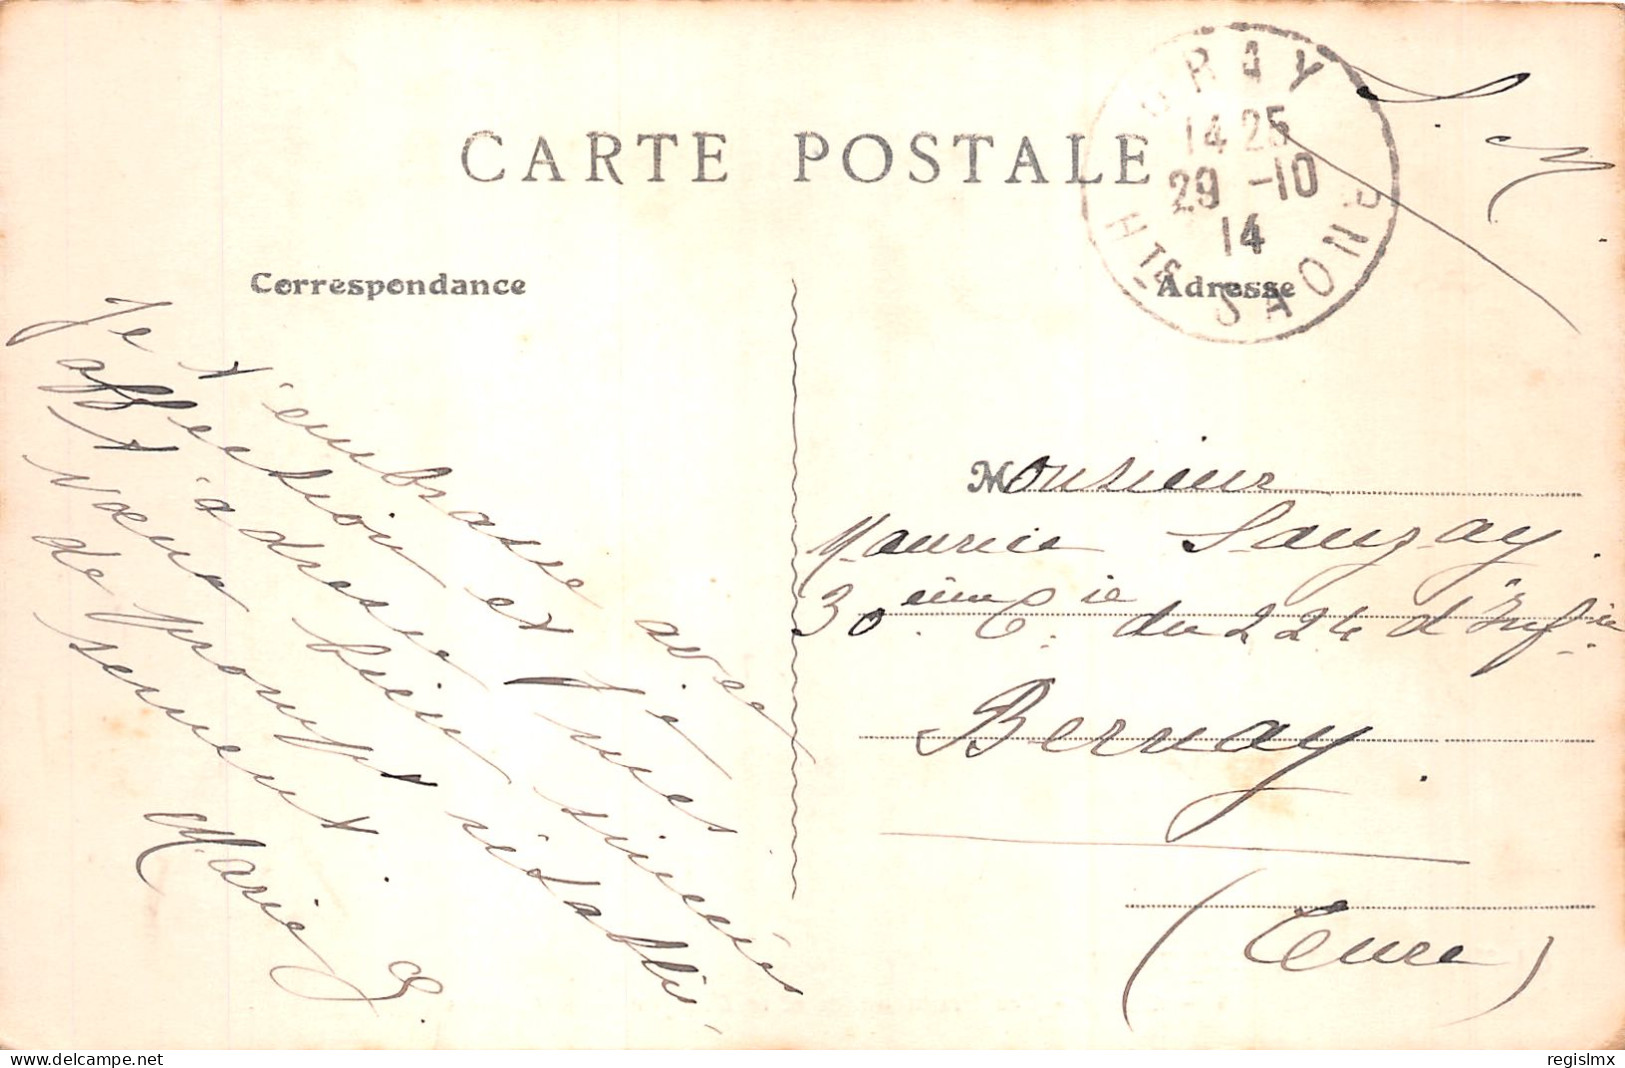 CARTE POSTALE
GRAY
14 25
29 -10
14
HTE SAONE
F. M.
Correspondance
Adresse
Je t'embrasse avec
affection et je
t'adresse mes
vœux bien sincères
de prompt rétablis-
sement.
Marie S.
Monsieur
Maurice Sauzay
30ème Cie du 224 d'Infie
Bernay.
(Eure)
www.delcampe.net
regislmx